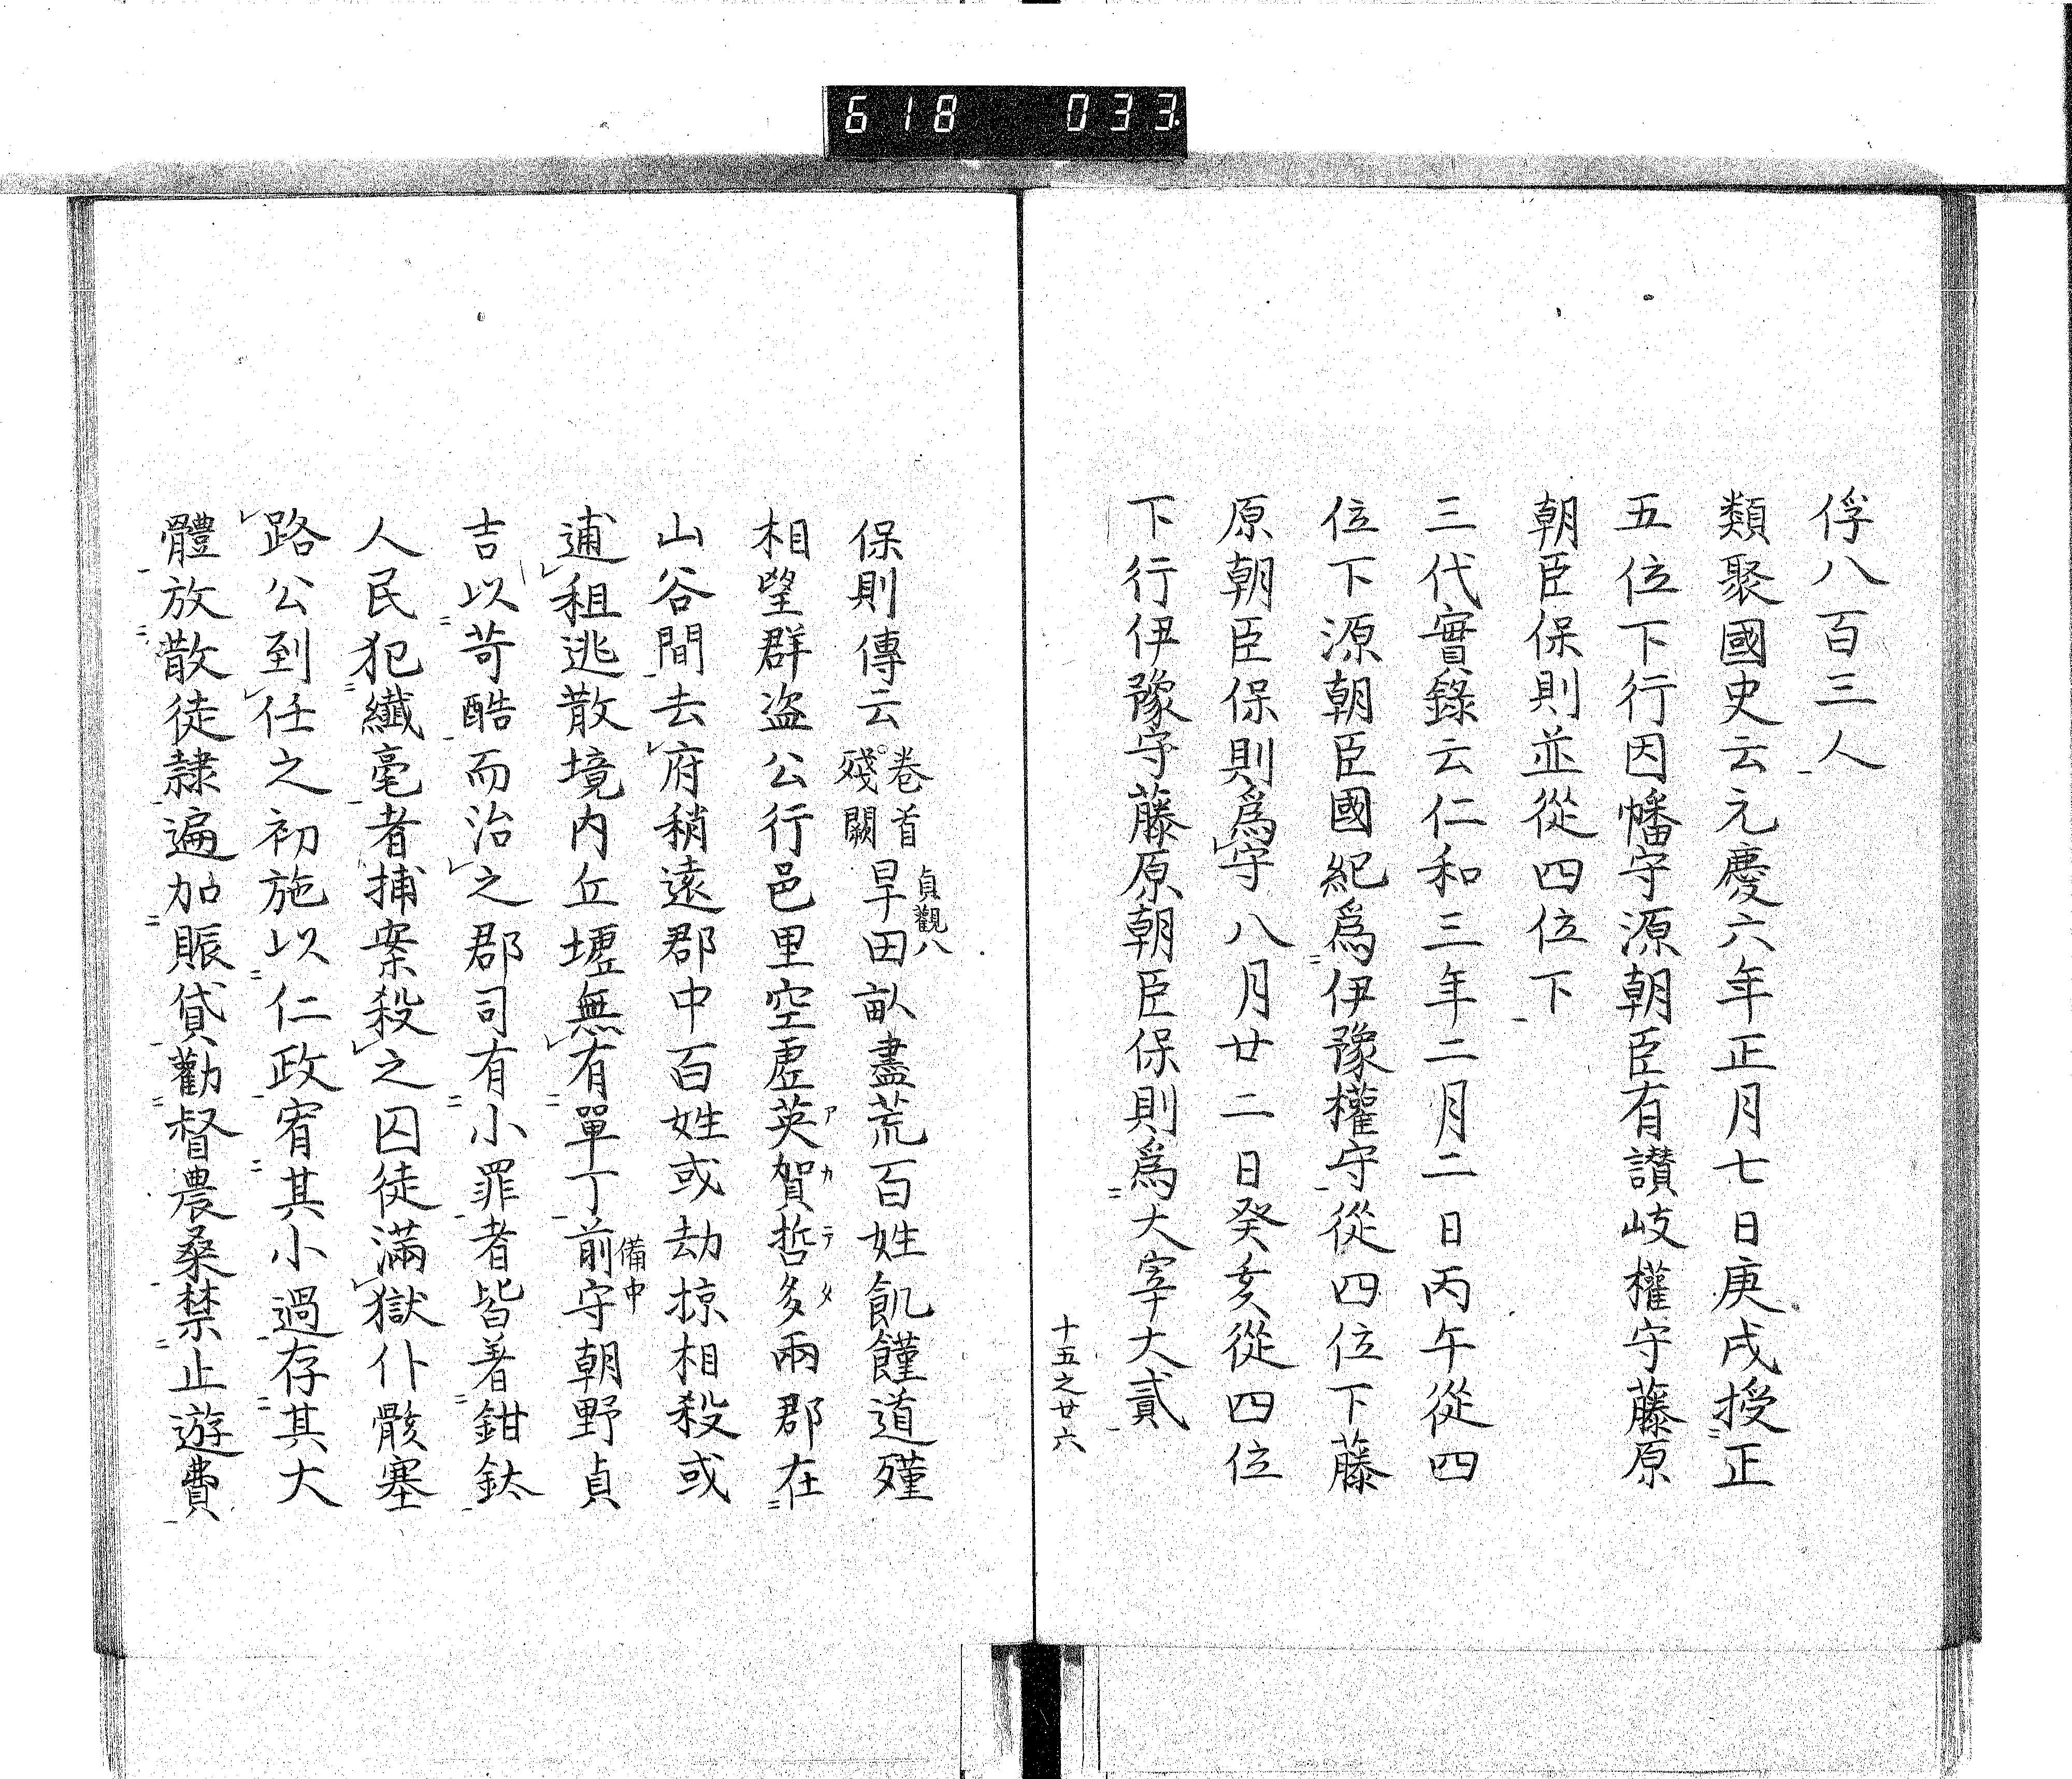 618 033
俘八百三人
類聚國史云元慶六年正月七日庚戌授正
五位下行因幡守源朝臣有讃岐權守藤原
朝臣保則並從四位下
三代實錄云仁和三年二月二日丙午從四
位下源朝臣國紀爲伊豫權守從四位下藤
原朝臣保則爲守八月廿二日癸亥從四位
下行伊豫守藤原朝臣保則爲大宰大貳
十五之廿六
保則傳云卷首殘闕貞觀八旱田畝盡荒百姓飢饉道殣
相望群盗公行邑里空虛英賀哲多兩郡在
アカテタ
山谷間去府稍遠郡中百姓或劫掠相殺或
逋租逃散境内丘墟無有單丁前守朝野貞
備中
吉以苛酷而治之郡司有小罪者皆著鉗釱
人民犯纖毫者捕案殺之囚徒滿獄仆骸塞
路公到任之初施以仁政宥其小過存其大
體放散徒隷遍加賑貸勸督農桑禁止遊費